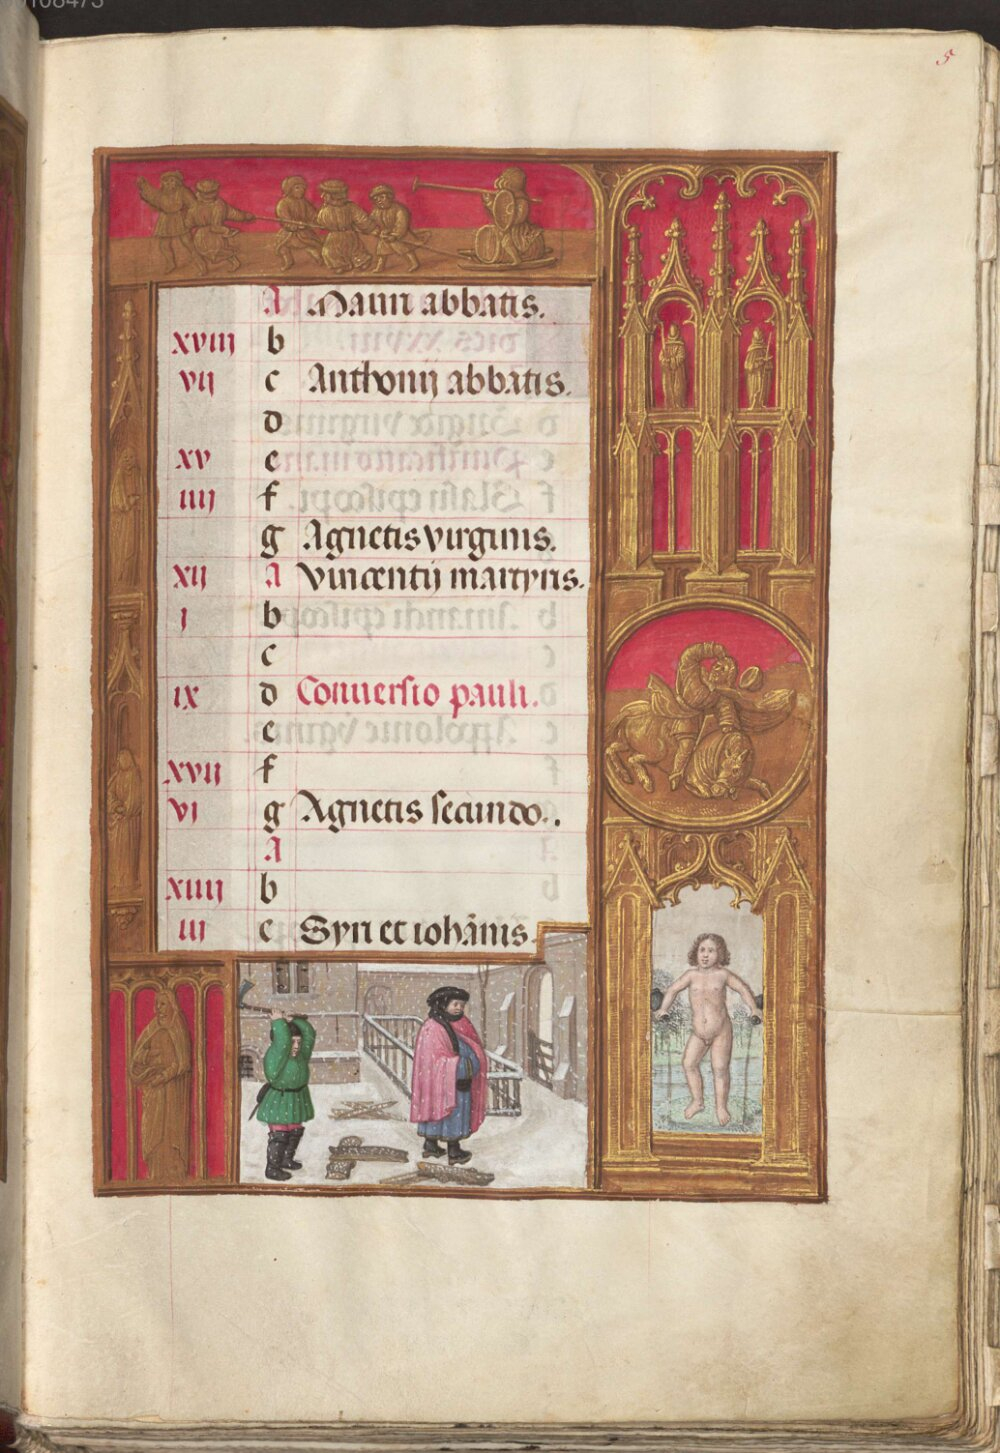 5
A Mauri abbatis.
xviii b
vii c Anthonij abbatis.
d
xv e
iiii f
g Agnetis virginis.
xii A Vincentij martyris.
i b
c
ix d Conversio pauli.
e
xvii f
vi g Agnetis secundo.
A
xiiii b
iii c Cyri et iohānis.